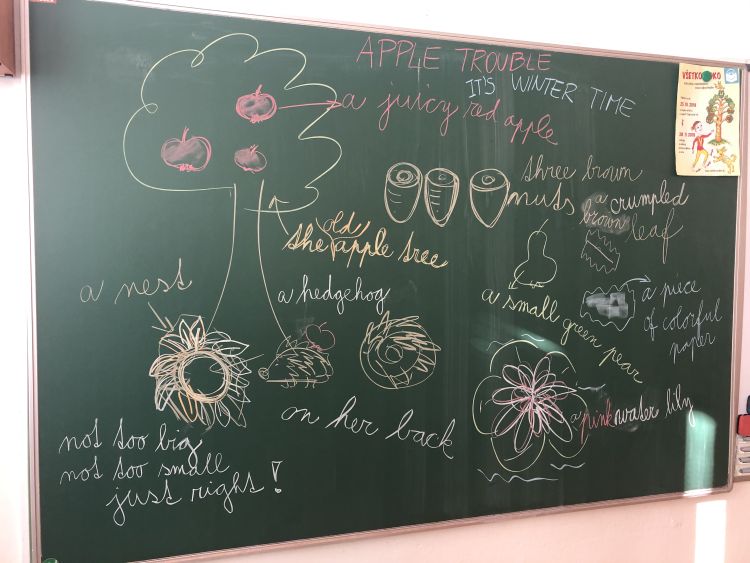 APPLE TROUBLE
IT'S WINTER TIME
a juicy red apple
three brown
nuts
a crumpled
brown leaf
the old apple tree
a small green pear
a piece
of colorful
paper
a nest
a hedgehog
on her back
a pink water lily
not too big
not too small
just right!
VŠETKO
OKO